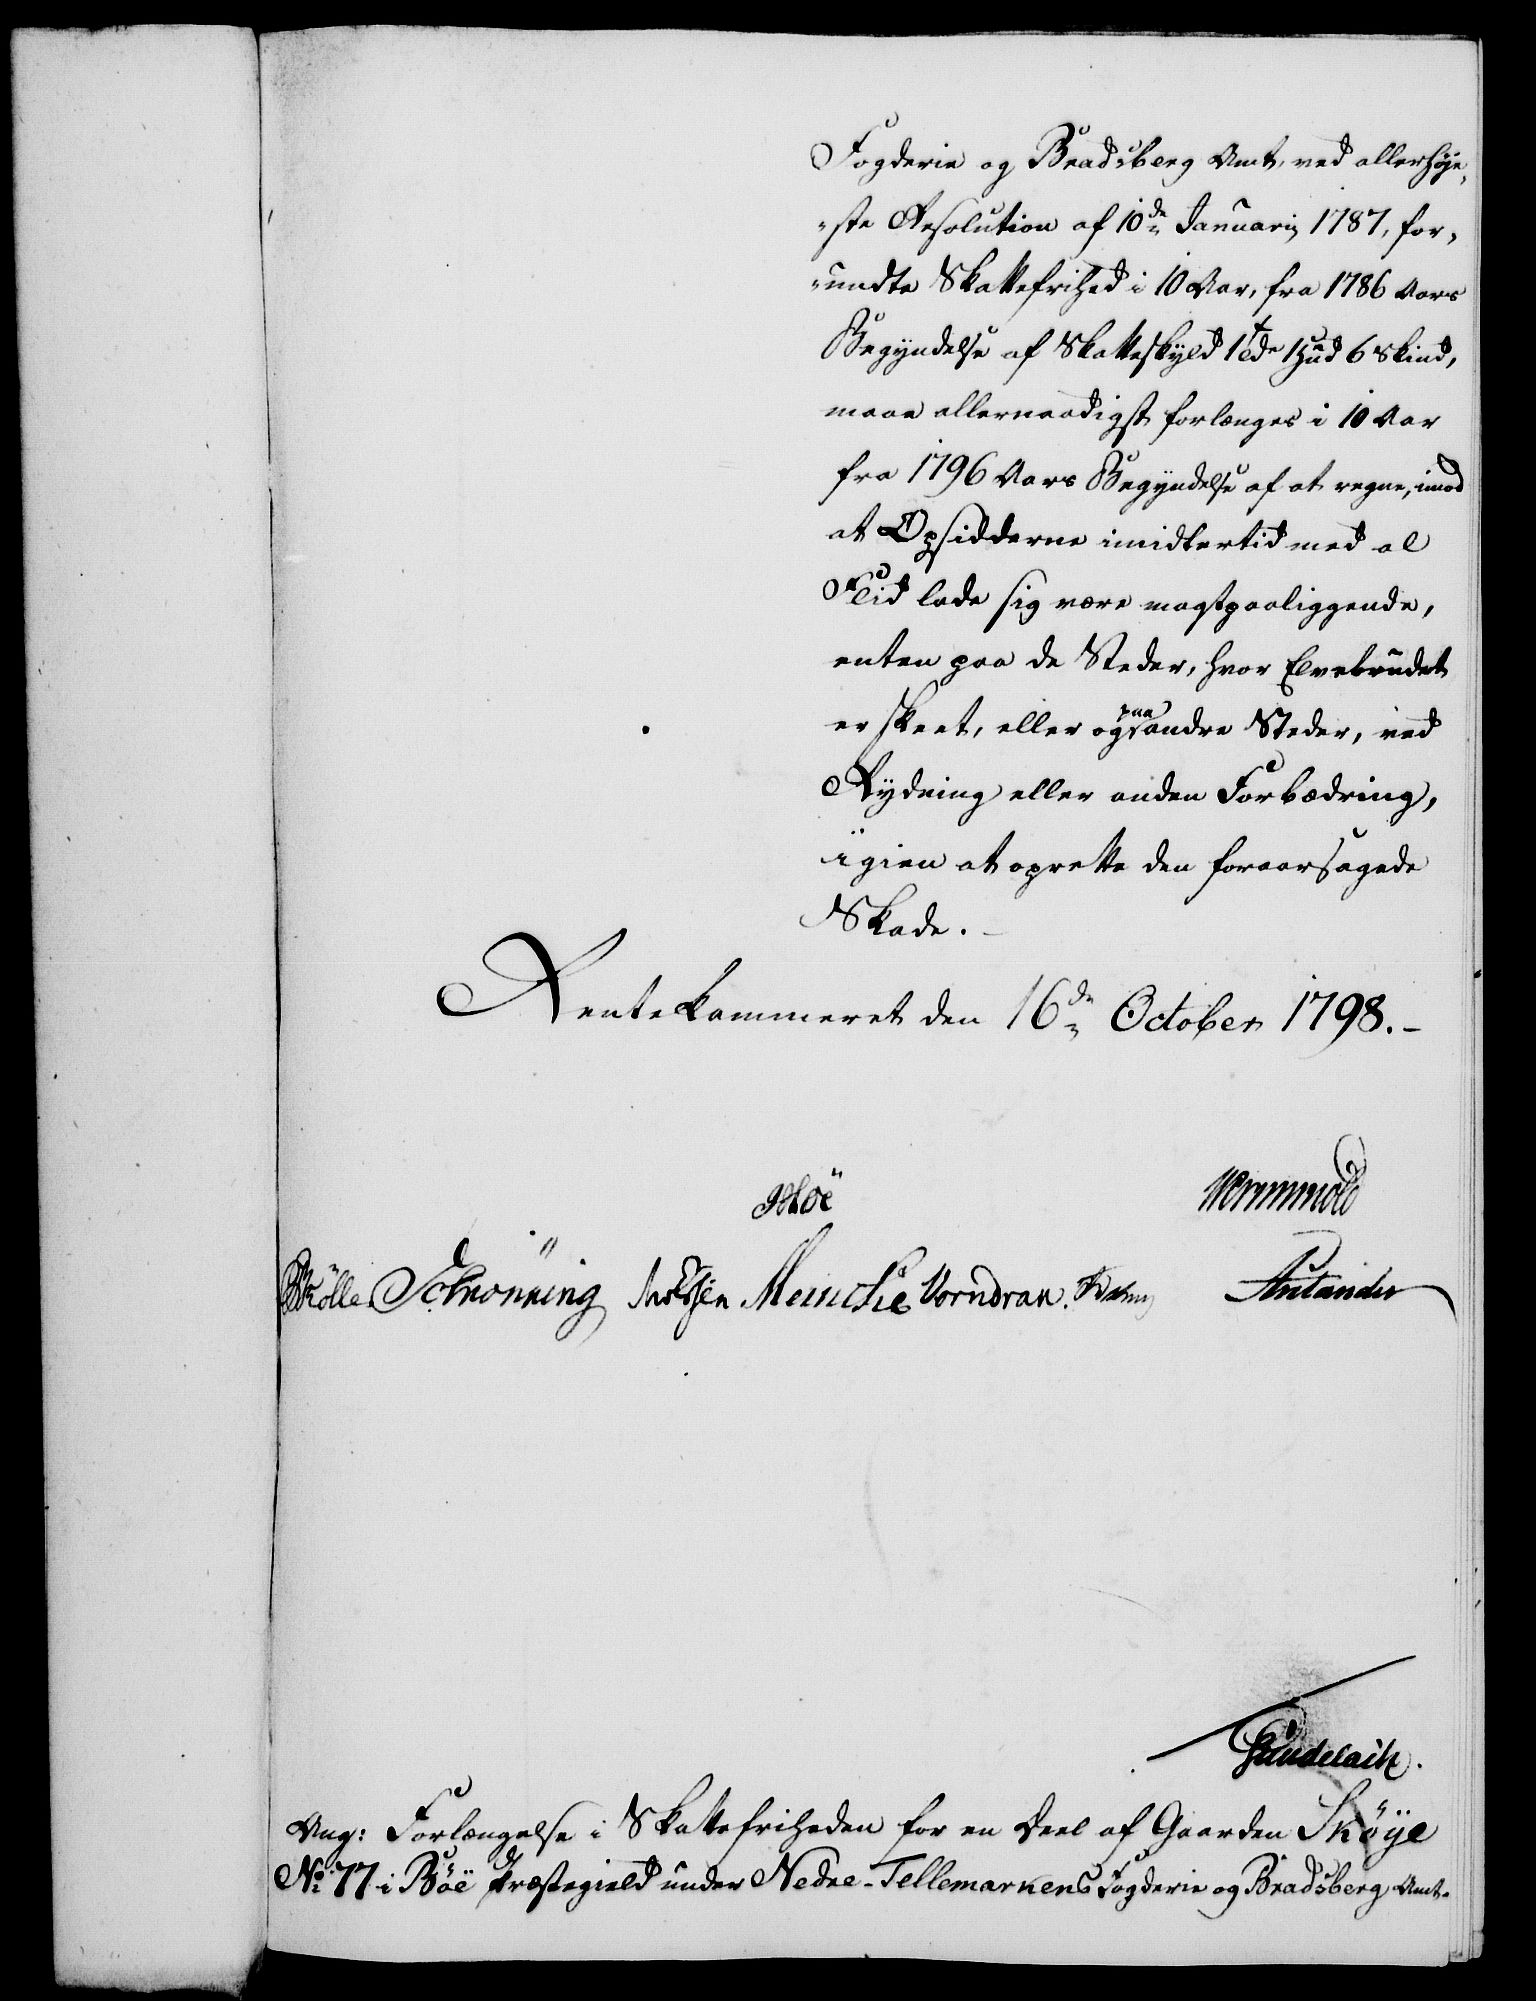 Fogderie og Bradsberg Amt, ved allerhöye„
„ste Resolution af 10de Januarij 1787, for„
„undte Skattefrihed i 10 Aar, fra 1786 Aars
Begyndelse af Skatteskyld 1 Hud 6 Skind,
maae allernaadigst forlænges i 10 Aar
fra 1796 Aars Begyndelse af at regne, imod
at Opsidderne imidlertid med al
Flid lade sig være magtpaaliggende,
enten paa de Steder, hvor Elvebrudet
er skeet, eller og paa andre Steder, ved
Rydning eller anden Forbædring,
igien at oprette den foraarsagede
Skade. –
Rentekammeret den 16de October 1798. –
Wormskiold
Schrönning Meincke Vorndran.
Gundelach.
Ang: Forlængelse i Skattefriheden for en Deel af Gaarden Sköye
No 77 i Böe Præstegield under Nedre-Tellemarkens Fogderie og Bradsberg Amt.